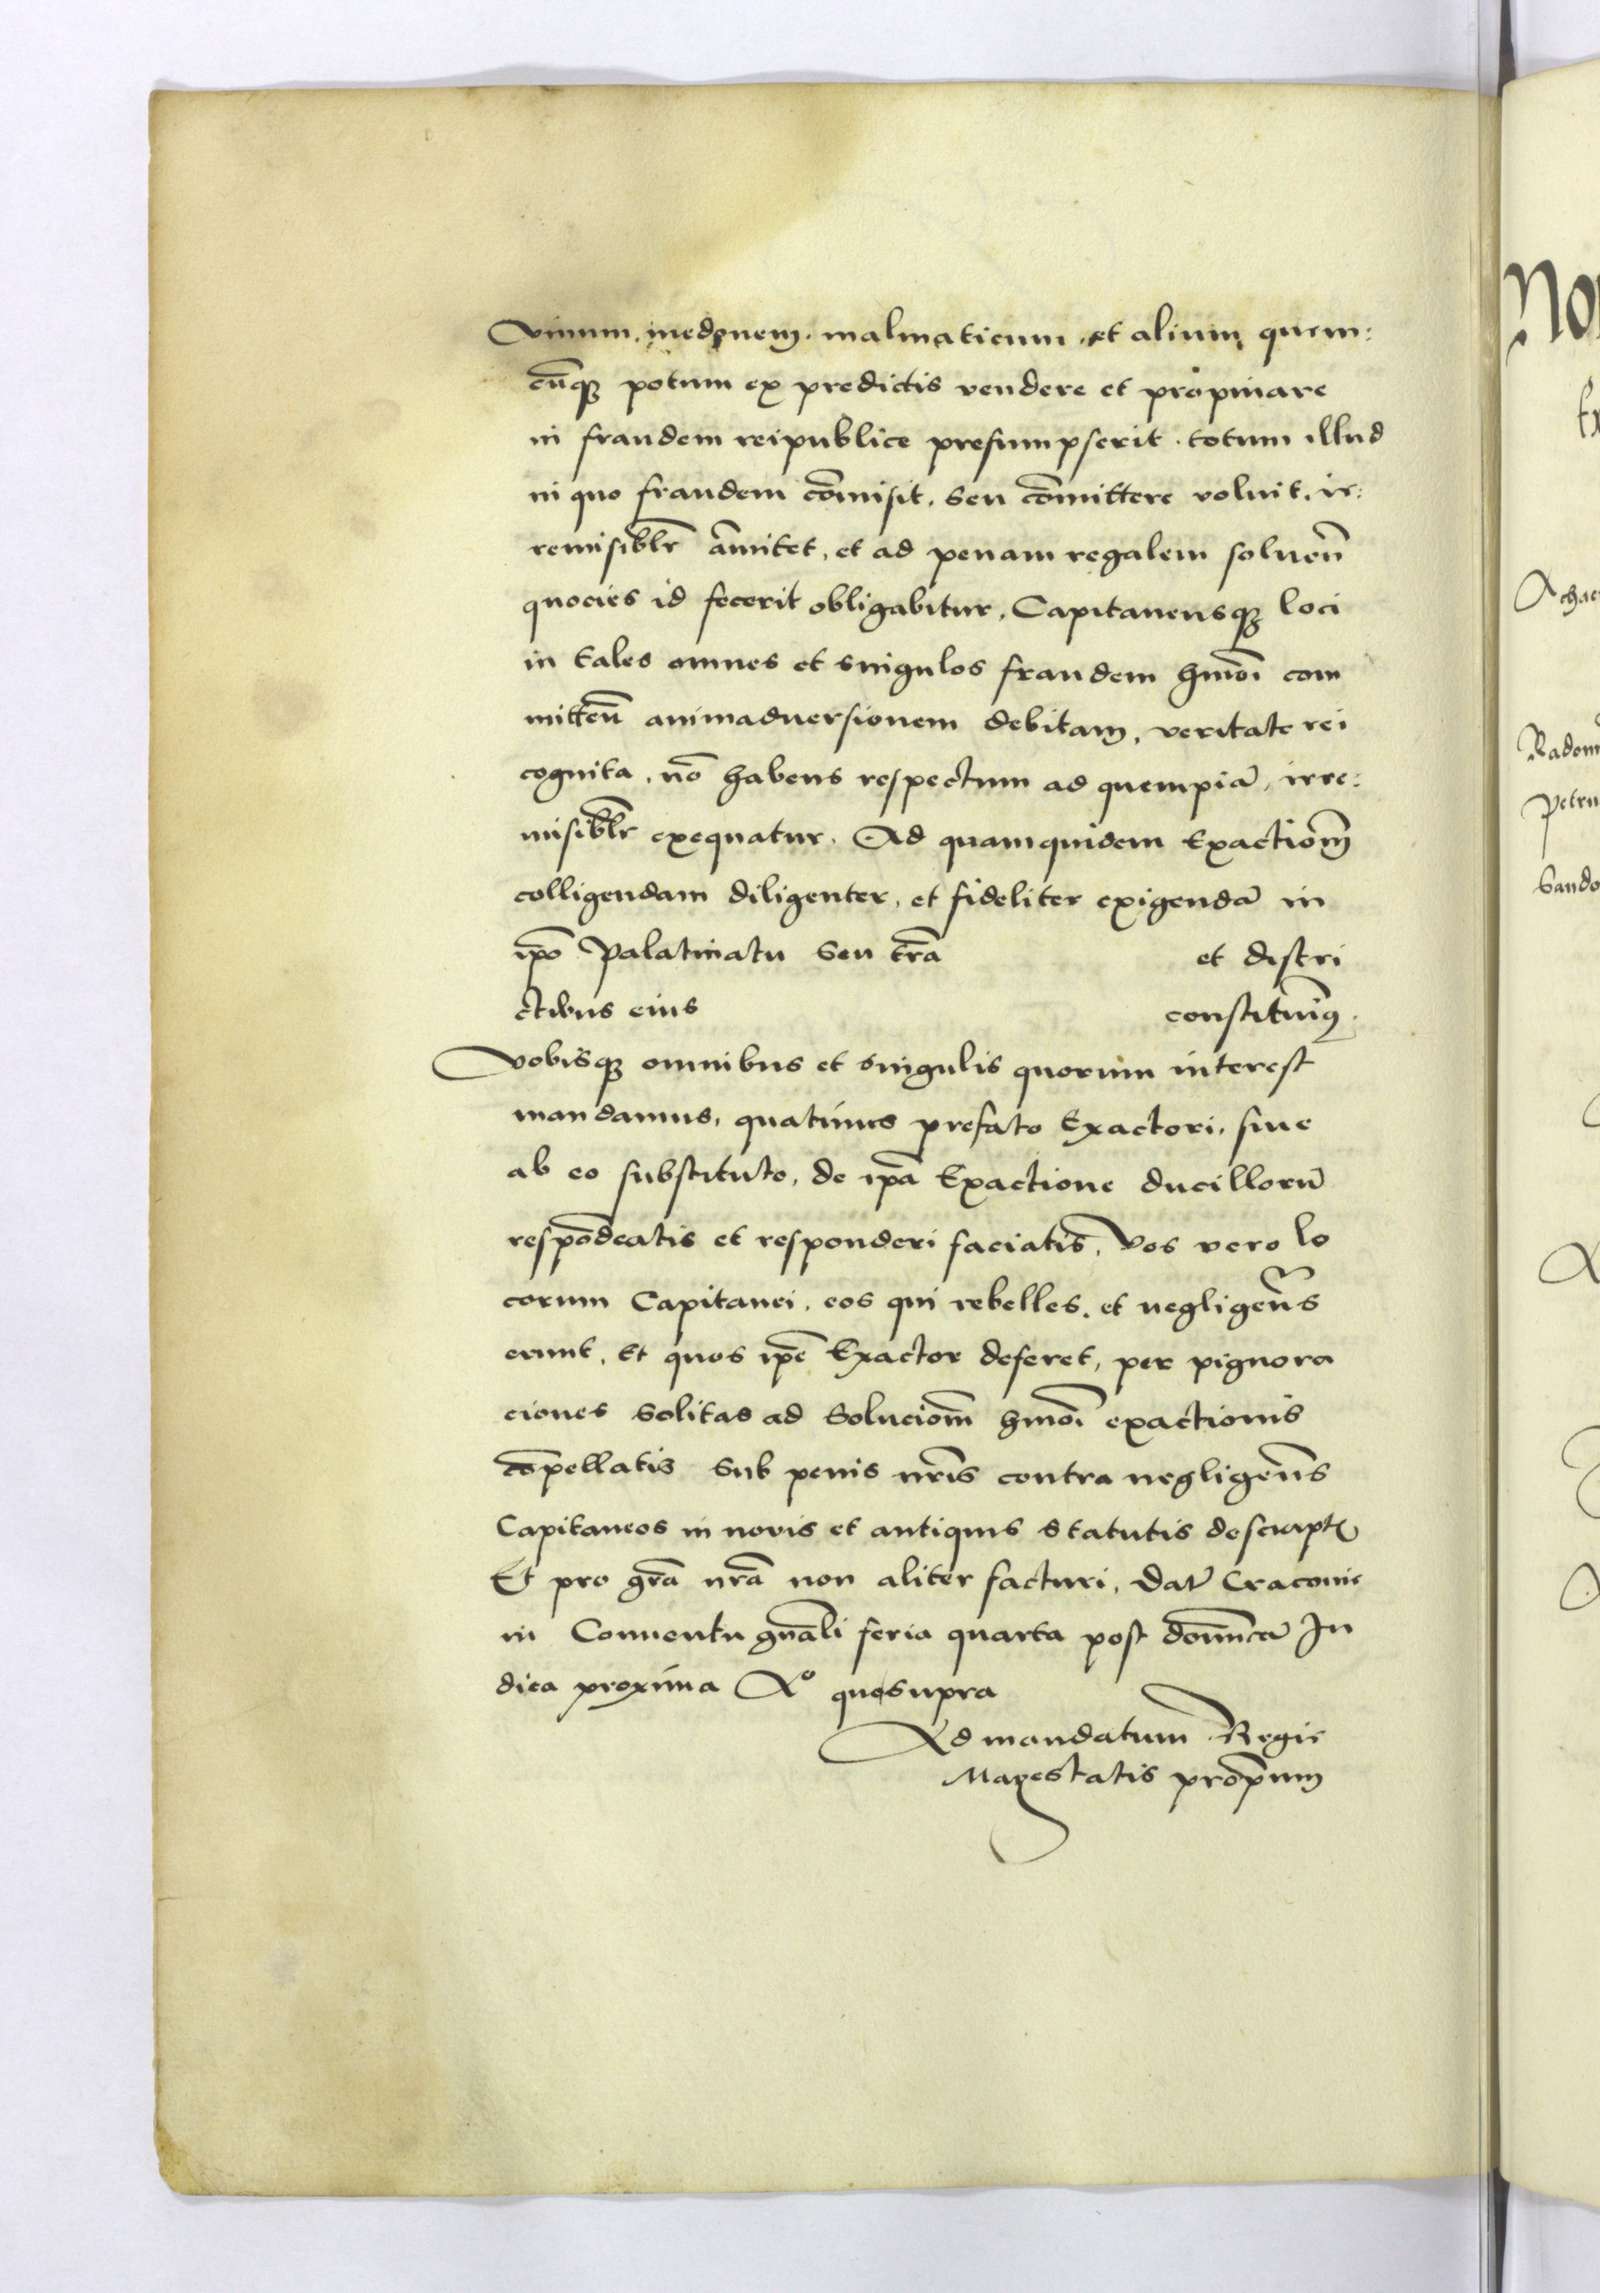 Vinum, medonem, malmaticum, et alium quem:
cūqȝ potum ex predictis vendere et propinare
in fraudem reipublice presumpserit. totum illud
in quo fraudem cōmisit, seu cōmittere voluit, ir:
remisiblr̄ āmittet, et ad penam regalem soluen̄
quocies id fecerit obligabitur, Capitaneusqȝ loci
in tales omnes et singulos fraudem hmōi com
mitten̄ animaduersionem debitam, veritate rei
cognita, nō habens respectum ad quempiā, irre:
misiblr̄ exequatur. Ad quamquidem Exactiōm
colligendam diligenter, et fideliter exigendā in
ip̄o Palatinatu seu tr̄a et distri
ctibus eius constituim9.
Vobisqȝ omnibus et singulis quorum interest
mandamus, quatinus prefato Exactori, siue
ab eo substituto, de ip̄a Exactione ducillorū
respōdeatis et responderi faciatis, Vos vero lo
corum Capitanei, eos qui rebelles, et negligen̄s
erunt, Et quos ip̄e Exactor deferet, per pignora
ciones solitas ad Soluciōm hmōi exactionis
cōpellatis sub penis nr̄is contra negligen̄s
Capitaneos in novis et antiquis statutis descript
Et pro gr̄a nr̄a non aliter facturi, Dat̄ Cracovie
in Conuentu gn̄ali feria quarta post domīcā In
dica proxima Aº quosupra
Ad mandatum Regie
Maiestatis prop̄um
No
Achac
Petru
Sando